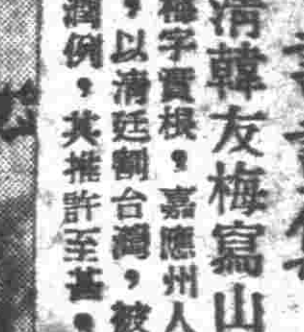 清韓友梅寫山
梅字實根，嘉應州人
，以清廷割台灣，被
潤例，其推許至甚，